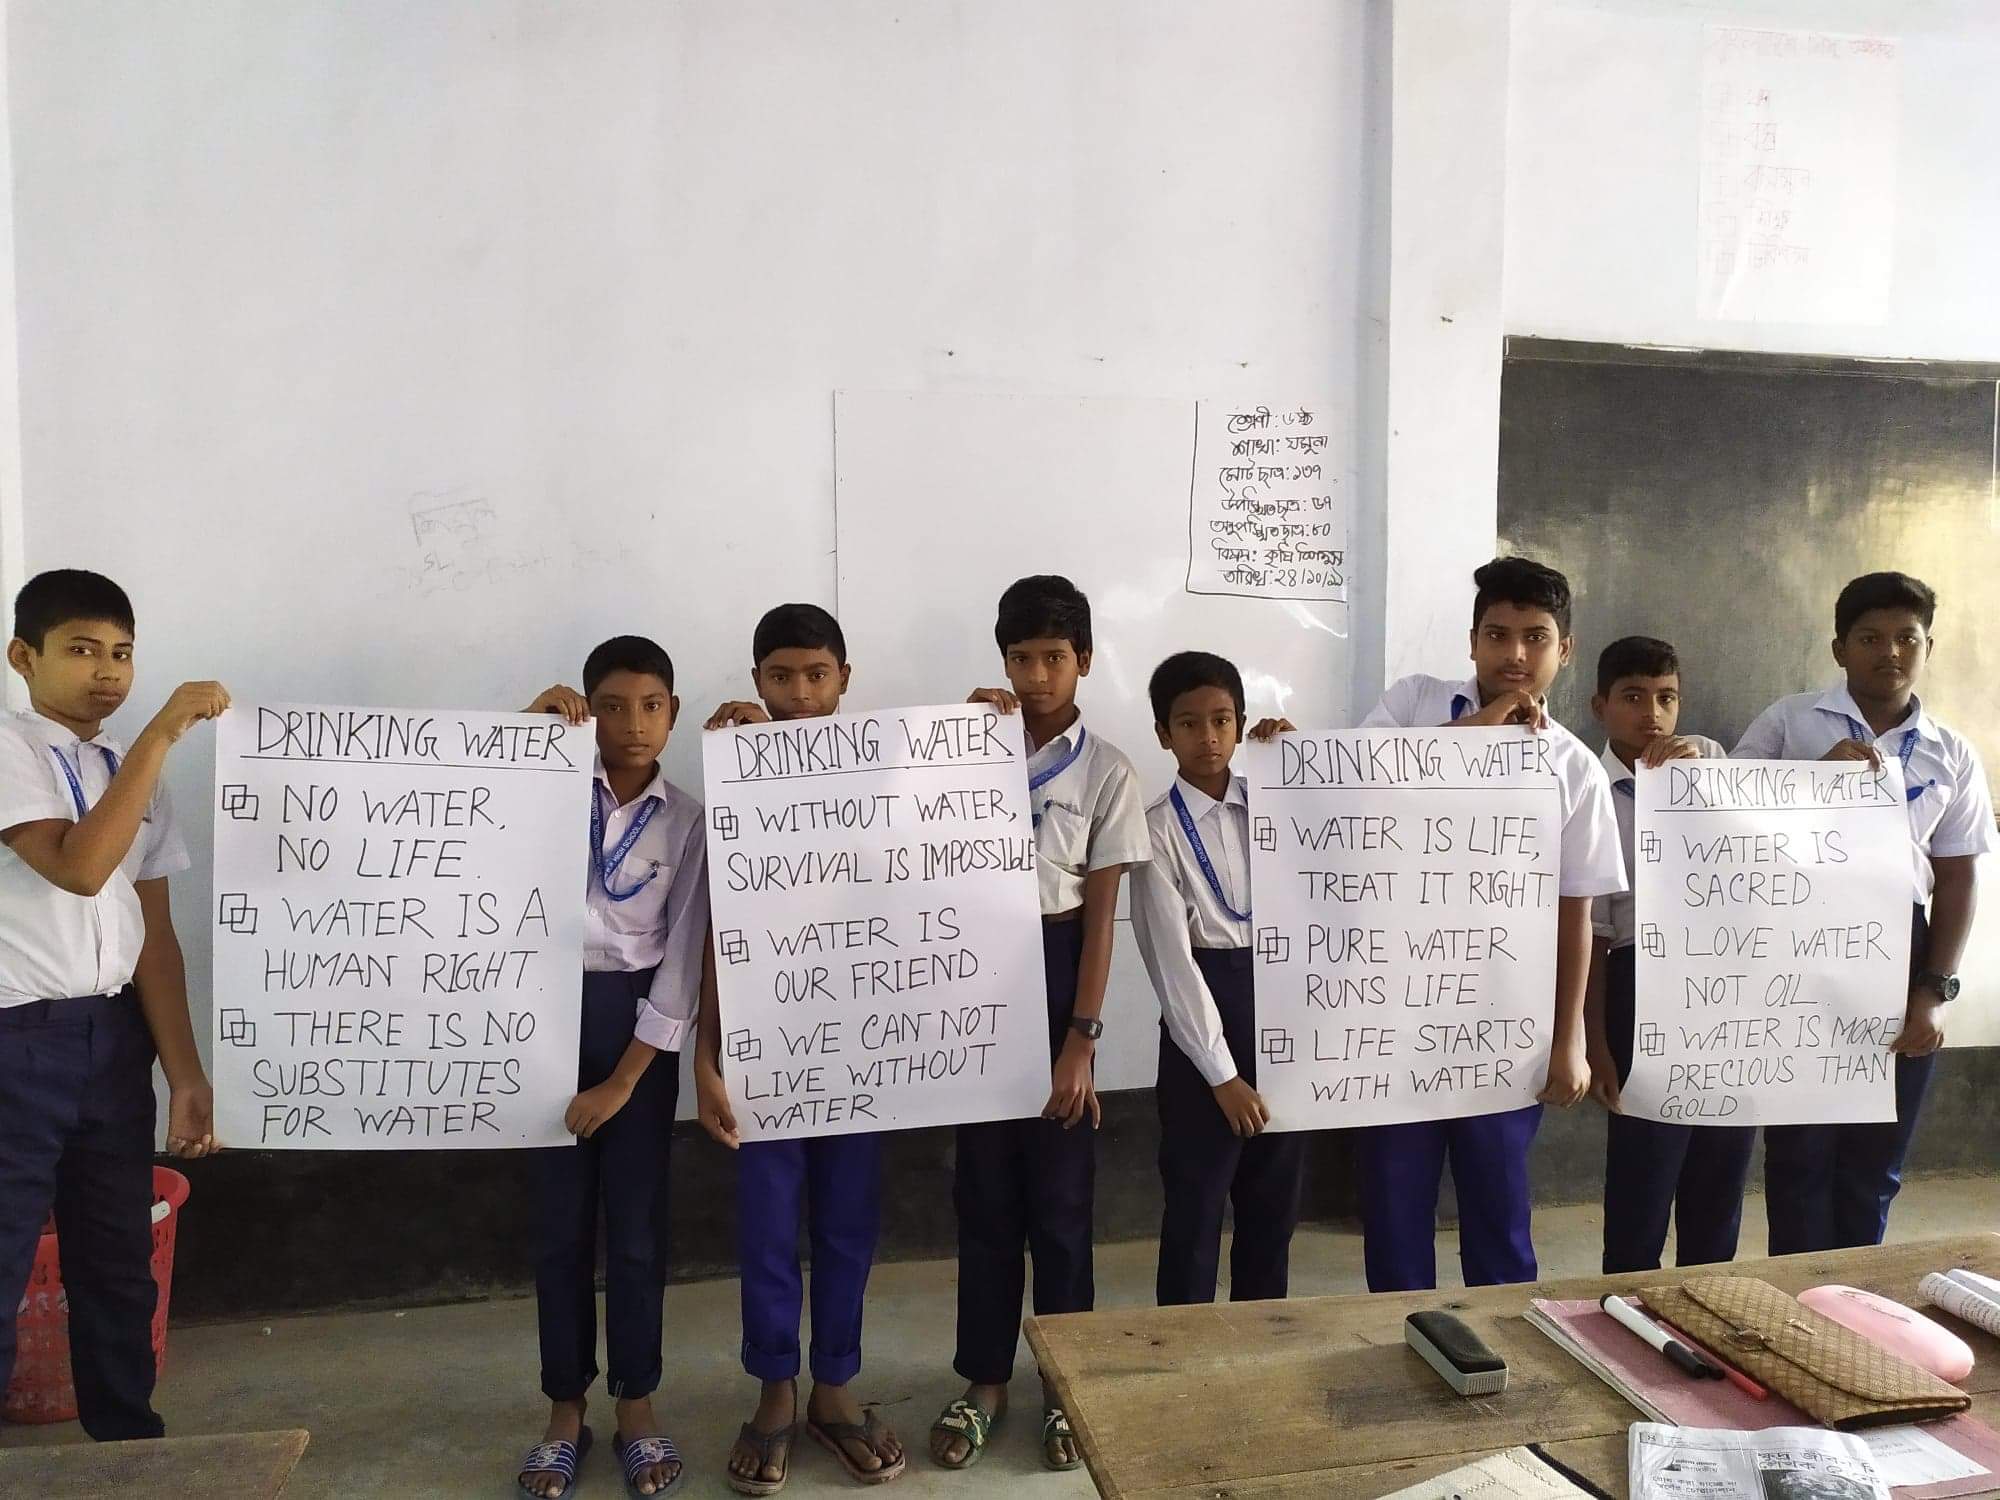 DRINKING WATER
NO WATER,
NO LIFE.
WATER IS A
HUMAN RIGHT.
THERE IS NO
SUBSTITUTES
FOR WATER.
DRINKING WATER
WITHOUT WATER,
SURVIVAL IS IMPOSSIbLE
WATER IS
OUR FRIEND.
WE CAN NOT
LIVE WITHOUT
WATER.
DRINKING WATER
WATER IS LIFE,
TREAT IT RIGHT.
PURE WATER
RUNS LIFE.
LIFE STARTS
WITH WATER.
DRINKING WATER
WATER IS
SACRED.
LOVE WATER
NOT OIL.
WATER IS MORE
PRECIOUS THAN
GOLD.
শ্রেণী: ৬ষ্ঠ
শাখা: যমুনা
মোট ছাত্র: ১৩৭
উপস্থিত ছাত্র: ৫৭
অনুপস্থিত ছাত্র: ৮০
বিষয়: কৃষি শিক্ষা
তারিখ: ২৪/১০/১৯
বস্ত্র
বাসস্থান
HIGH SCHOOL, ADAM
PUMA